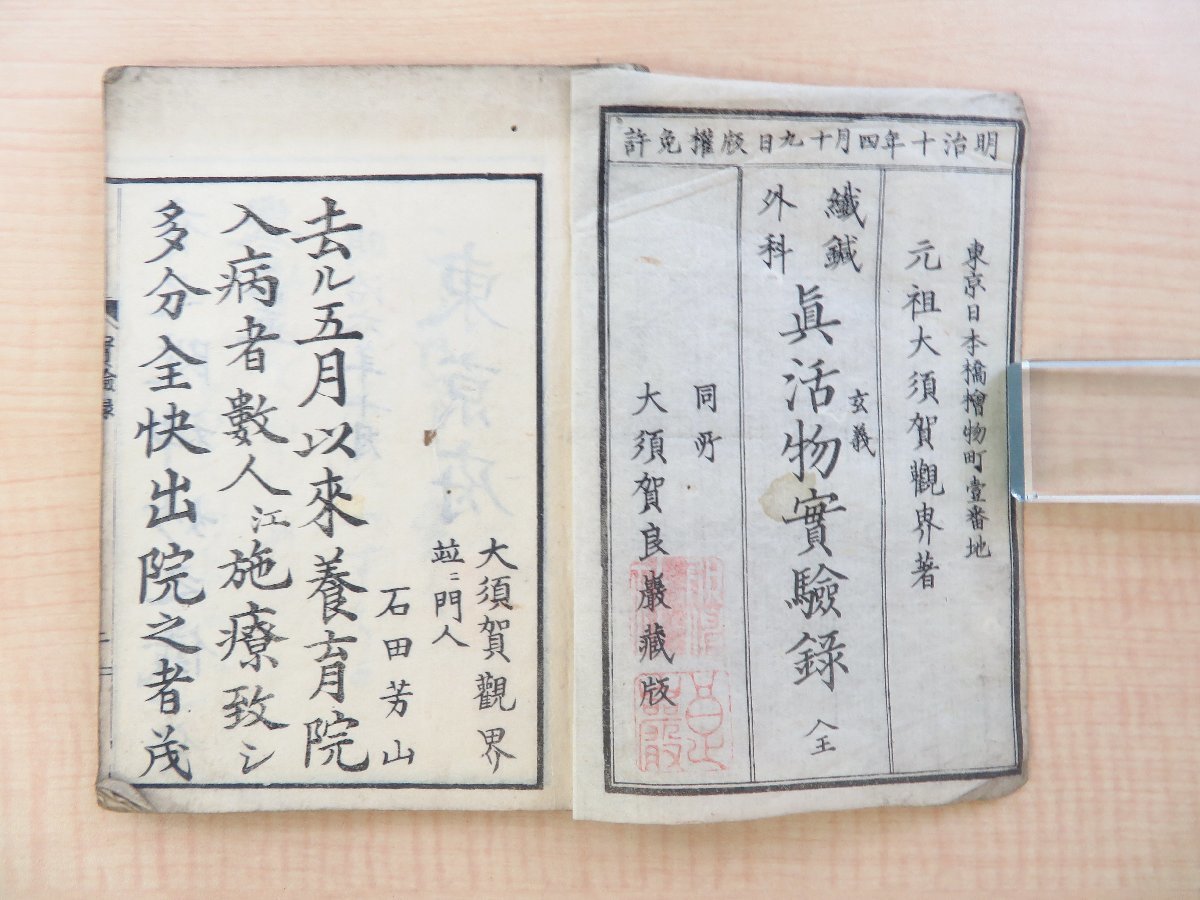 明治十年四月十九日版權免許
東京日本橋檜物町壹番地
元祖大須賀觀界著
纎鍼
外科
玄義
眞活物實驗錄
全
同所
大須賀良巖藏版
大須賀觀界
並ニ門人
石田芳山
去ル五月以來養育院
入病者數人江施療致シ
多分全快出院之者茂